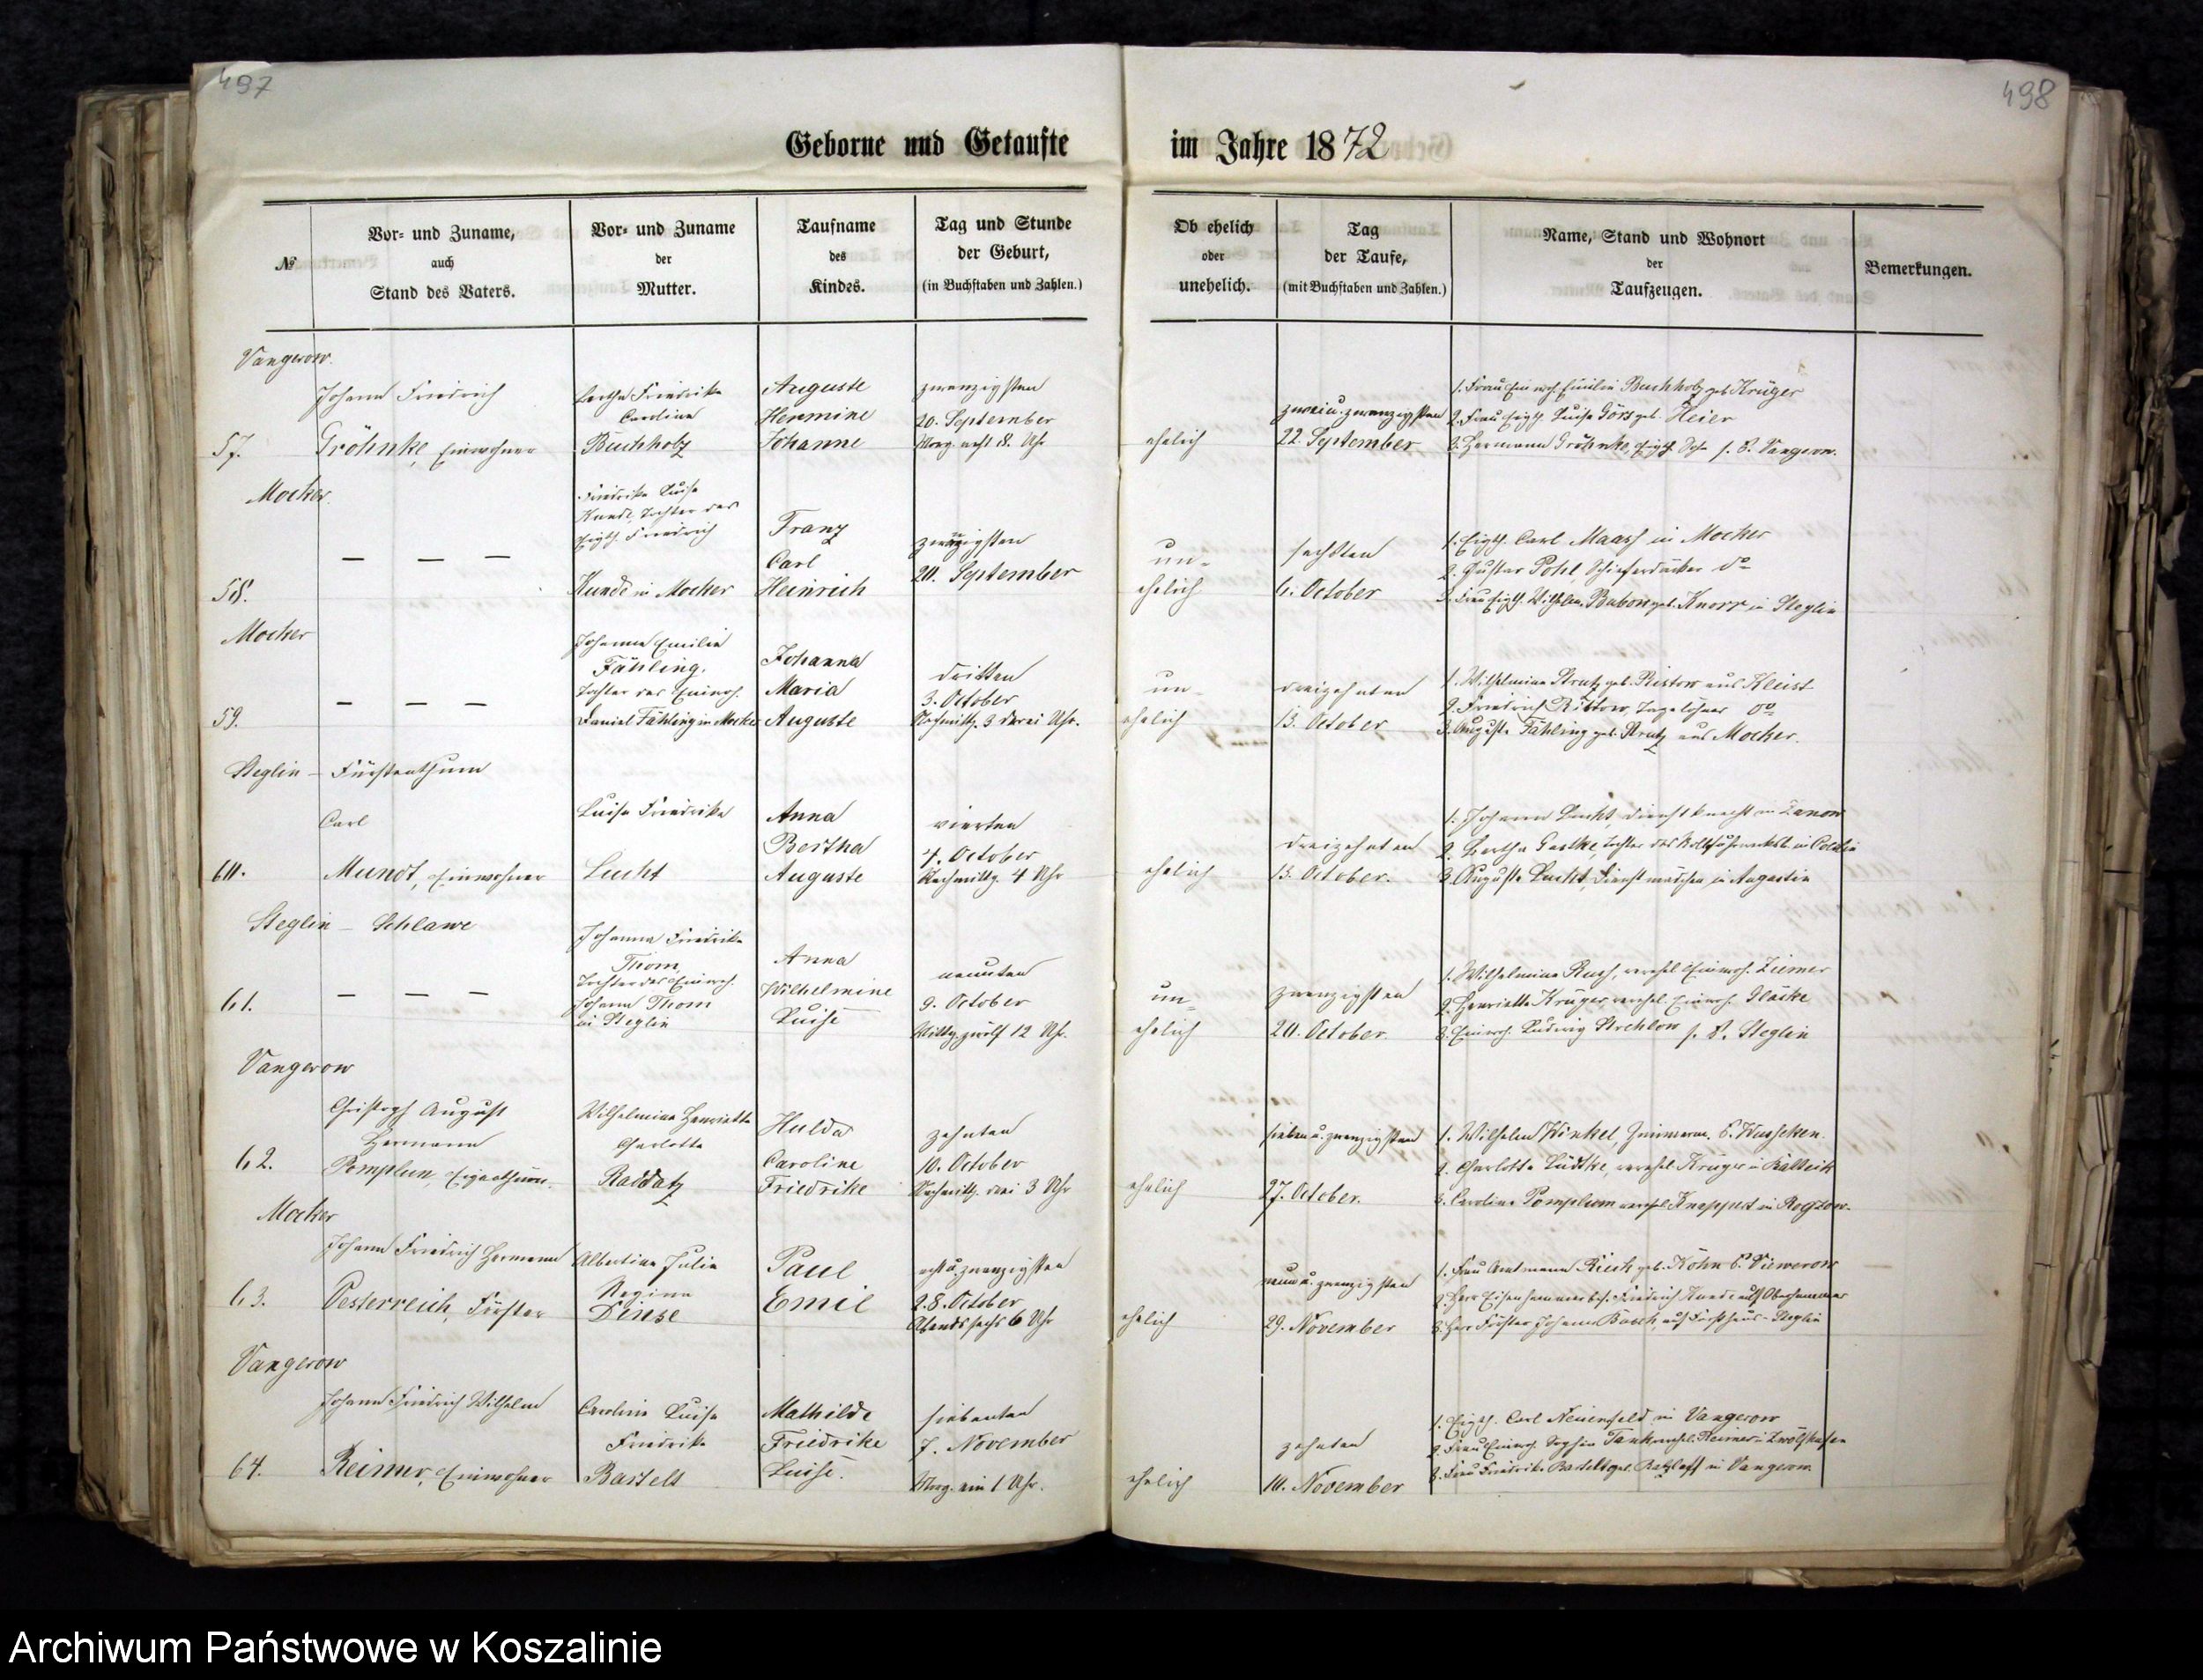 497
498
Geborne und Getaufte
im Jahre 1872
№
Vor- und Zuname,
auch
Stand des Vaters.
Vor- und Zuname
der
Mutter.
Taufname
des
Kindes.
Tag und Stunde
der Geburt,
(in Buchstaben und Zahlen.)
Ob ehelich
oder
unehelich.
Tag
der Taufe,
(mit Buchstaben und Zahlen.)
Name, Stand und Wohnort
der
Taufzeugen.
Bemerkungen.
Vangerow.
57.
Johann Friedrich
Gröhnke, Einwohner
Bertha Friedrike
Caroline
Buchholz
Auguste
Hermine
Johanne
zwanzigsten
20. September
Morg. acht 8. Uhr
ehelich
zwei u. zwanzigsten
22. September
1. Frau Einwoh. Emilie Buchholz geb. Krüger
2. Frau Eigth. Luise Görs geb. Heier
3. Hermann Gröhnke, Eigth. Sohn s. 8. Vangerow.
Mocker.
58.
— — —
Friedrike Luise
Kunde, Tochter des
Eigth. Friedrich
Kunde in Mocker
Franz
Carl
Heinrich
zwanzigsten
20. September
un-
ehelich
sechsten
6. October
1. Eigth. Carl Maass in Mocker
2. Gustav Pohl, Schieferdecker do
3. Frau Eigth. Wilhelm. Bubow geb. Knorr in Steglin
Mocker
59.
— — —
Johanne Emilie
Fähling,
Tochter des Einwoh.
Daniel Fähling in Mocker
Johanna
Maria
Auguste
dritten
3. October
Nachmittg. 3 drei Uhr.
un-
ehelich
dreizehnten
13. October
1. Wilhelmine Strutz geb. Ristow aus Kleist
2. Friedrich Ristow, Tagelöhner do
3. Auguste Fähling geb. Strutz aus Mocker.
Steglin — Fürstenthum
60.
Carl
Mundt, Einwohner
Luise Friedrike
Lucht
Anna
Bertha
Auguste
vierten
4. October
Nachmittg. 4 Uhr
ehelich
dreizehnten
13. October.
1. Johann Lucht, Dienstknecht in Zanow
3. Auguste Lucht, Dienstmädchen in Augustin
Steglin — Schlawe
61.
— — —
Johanna Friedrike
Thom,
Tochter des Einwoh.
Johann Thom
in Steglin
Anna
Wilhelmine
Luise
neunten
9. October
Mittg. zwölf 12 Uhr.
un-
ehelich
zwanzigsten
20. October.
1. Wilhelmine Rusch, verehel. Einwoh. Ziemer
2. Henriette Krüger, verehel. Einwoh. Gläske
3. Einwoh. Ludwig Strehlow s. 8. Steglin
Vangerow
62.
Christoph August
Hermann
Pomplun, Eigenthüm.
Wilhelmine Henriette
Charlotte
Raddatz
Hulda
Caroline
Friedrike
zehnten
10. October
Nachmittg. drei 3 Uhr
ehelich
sieben u. zwanzigsten
27. October.
1. Wilhelm Winkel, Zimmerm.
2. Charlotte Lüdtke, verehel. Krüger in
3. Caroline Pomplum verehel. Knappert in Rogzow.
Mocker
63.
Johann Friedrich Hermann
Oesterreich, Förster
Albertine Julie
Regine
Dinse
Paul
Emil
acht u. zwanzigsten
28. October
Abends sechs 6 Uhr
ehelich
neun u. zwanzigsten
29. November
1. Frau Amtmann Riech geb. Köhn
3. Herr Förster Johann Busch, auf Forsthaus-Steglin
Vangerow
64.
Johann Friedrich Wilhelm
Reimer, Einwohner
Caroline Luise
Friedrike
Bartelt
Mathilde
Friedrike
Luise.
siebenten
7. November
Morg. ein 1 Uhr.
ehelich
zehnten
10. November
1. Eigth. Carl Neuenfeld in Vangerow
2. Frau Einwoh. Sophie Tank, verehel. Reimer in Zwölfhufen
3. Frau Friedrike Bartelt geb. Ratzlaff in Vangerow.
Archiwum Państwowe w Koszalinie